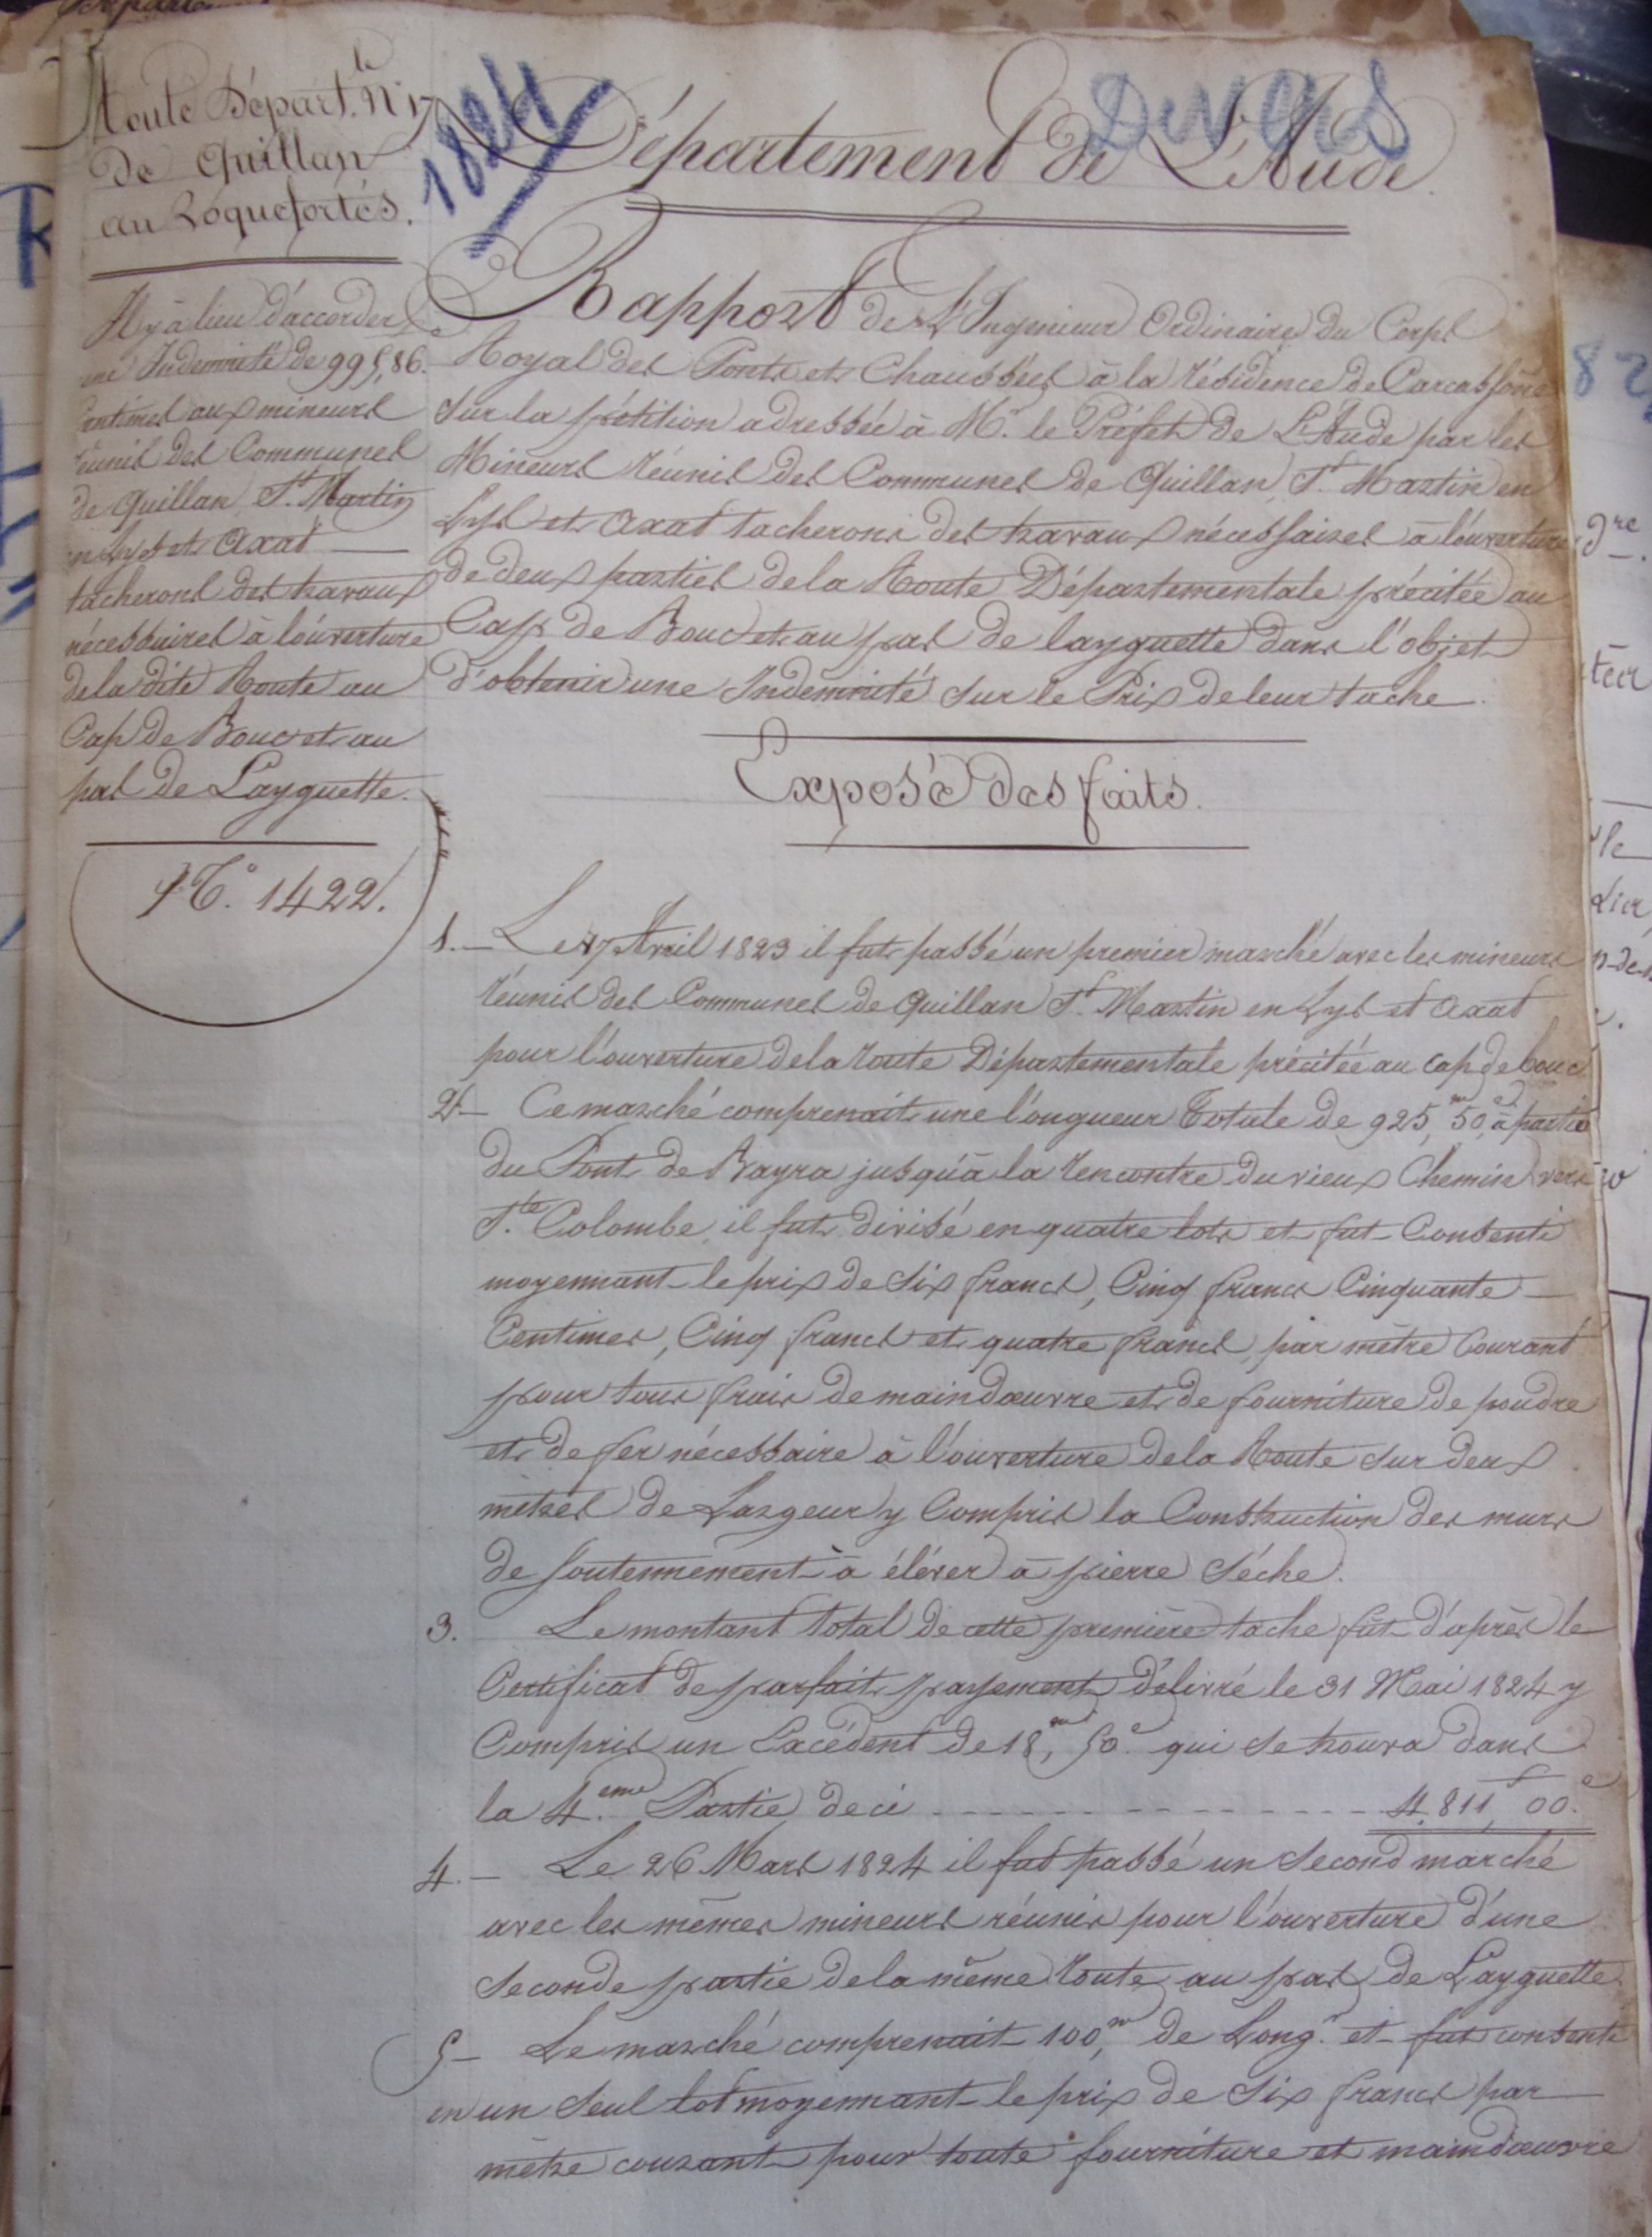 Route Départ.le N° 17
de Quillan
au Roquefortés.
Il y à lieu d'accorder
une Indemnité de 995,86.
Centimes aux mineurs
réunis des Communes
de Quillan, St. Martin
en Lys et Axat
tacherons des travaux
nécessaires à l'ouverture
de la dite Route au
Cap de Bouc et au
pas de Layguette.
N.° 1422.
1824
Divers
Département de L'Aude.
Rapport de L'Ingenieur Ordinaire du Corps
Royal des Ponts et Chaussées à la résidence de Carcassonne
sur la pétition adressée à Mr. le Préfet de L'Aude par les
Mineurs réunis des Communes de Quillan, St. Martin en
Lys et Axat tacherons des travaux nécessaires à l'ouverture
de deux parties de la Route Départementale précitée au
Cap de Bouc et au pas de layguette dans l'objet
d'obtenir une Indemnité sur le Prix de leur tache.
Exposé des faits.
1.— Le 17 Avril 1823 il fut passé un premier marché avec les mineurs
réunis des Communes de Quillan St. Martin en Lys et Axat
pour l'ouverture de la route Départementale précitée au cap de bouc
2.— Ce marché comprenait une l'ongueur Totale de 925,m 50,c à partir
du Pont de Rayra jusqu'à la rencontre du vieux Chemin vers
Ste. Colombe, il fut divisé en quatre lots et fut Consenti
moyennant le prix de Six francs, Cinq francs Cinquante
Centimes, Cinq francs et quatre francs, par mètre Courant
pour tous frais de maind'œuvre et de fourniture de poudre
et de fer nécessaire à l'ouverture de la Route sur deux
mètres de Largeur y Compris la Construction des murs
de soutennement à élever à pierre Séche.
3. Le montant total de cette première tache fut d'après le
Certificat de parfait payement délivré le 31 Mai 1824 y
Compris un Excédent de 18,m 50.c qui se trouva dans
la 4.eme Partie, de ci - - - - - - - - - - - - - 4,811,f 00.c
4.— Le 26 Mars 1824 il fut passé un Second marché
avec les mêmes mineurs réunis pour l'ouverture d'une
Seconde partie de la même route, au pas de Layguette
5— Le marché comprenait 100,m de Longr. et fut consenti
en un Seul lot moyennant le prix de Six francs par
mètre courant pour toute fourniture et maind'œuvre